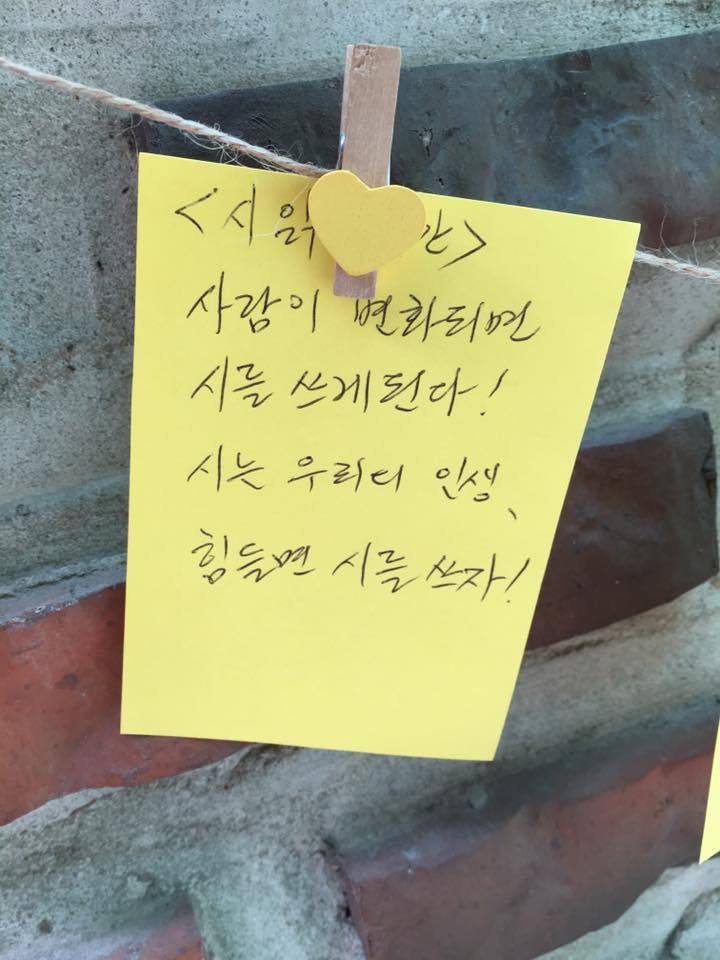 <시 읽
사람이 변화되면
시를 쓰게된다!
시는 우리의 인생,
힘들면 시를 쓰자!